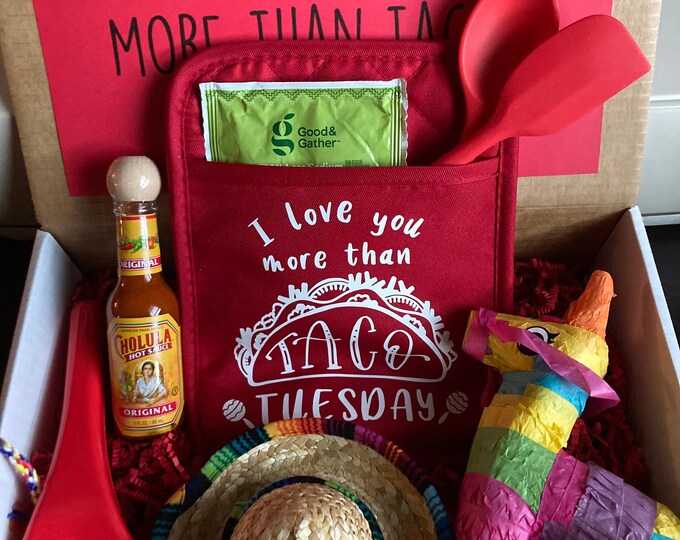 MORE THAN TAC
Good&
Gather™
I love you
more than
TACO
TUESDAY
ORIGINAL
CHOLULA
HOT SAUCE
ORIGINAL